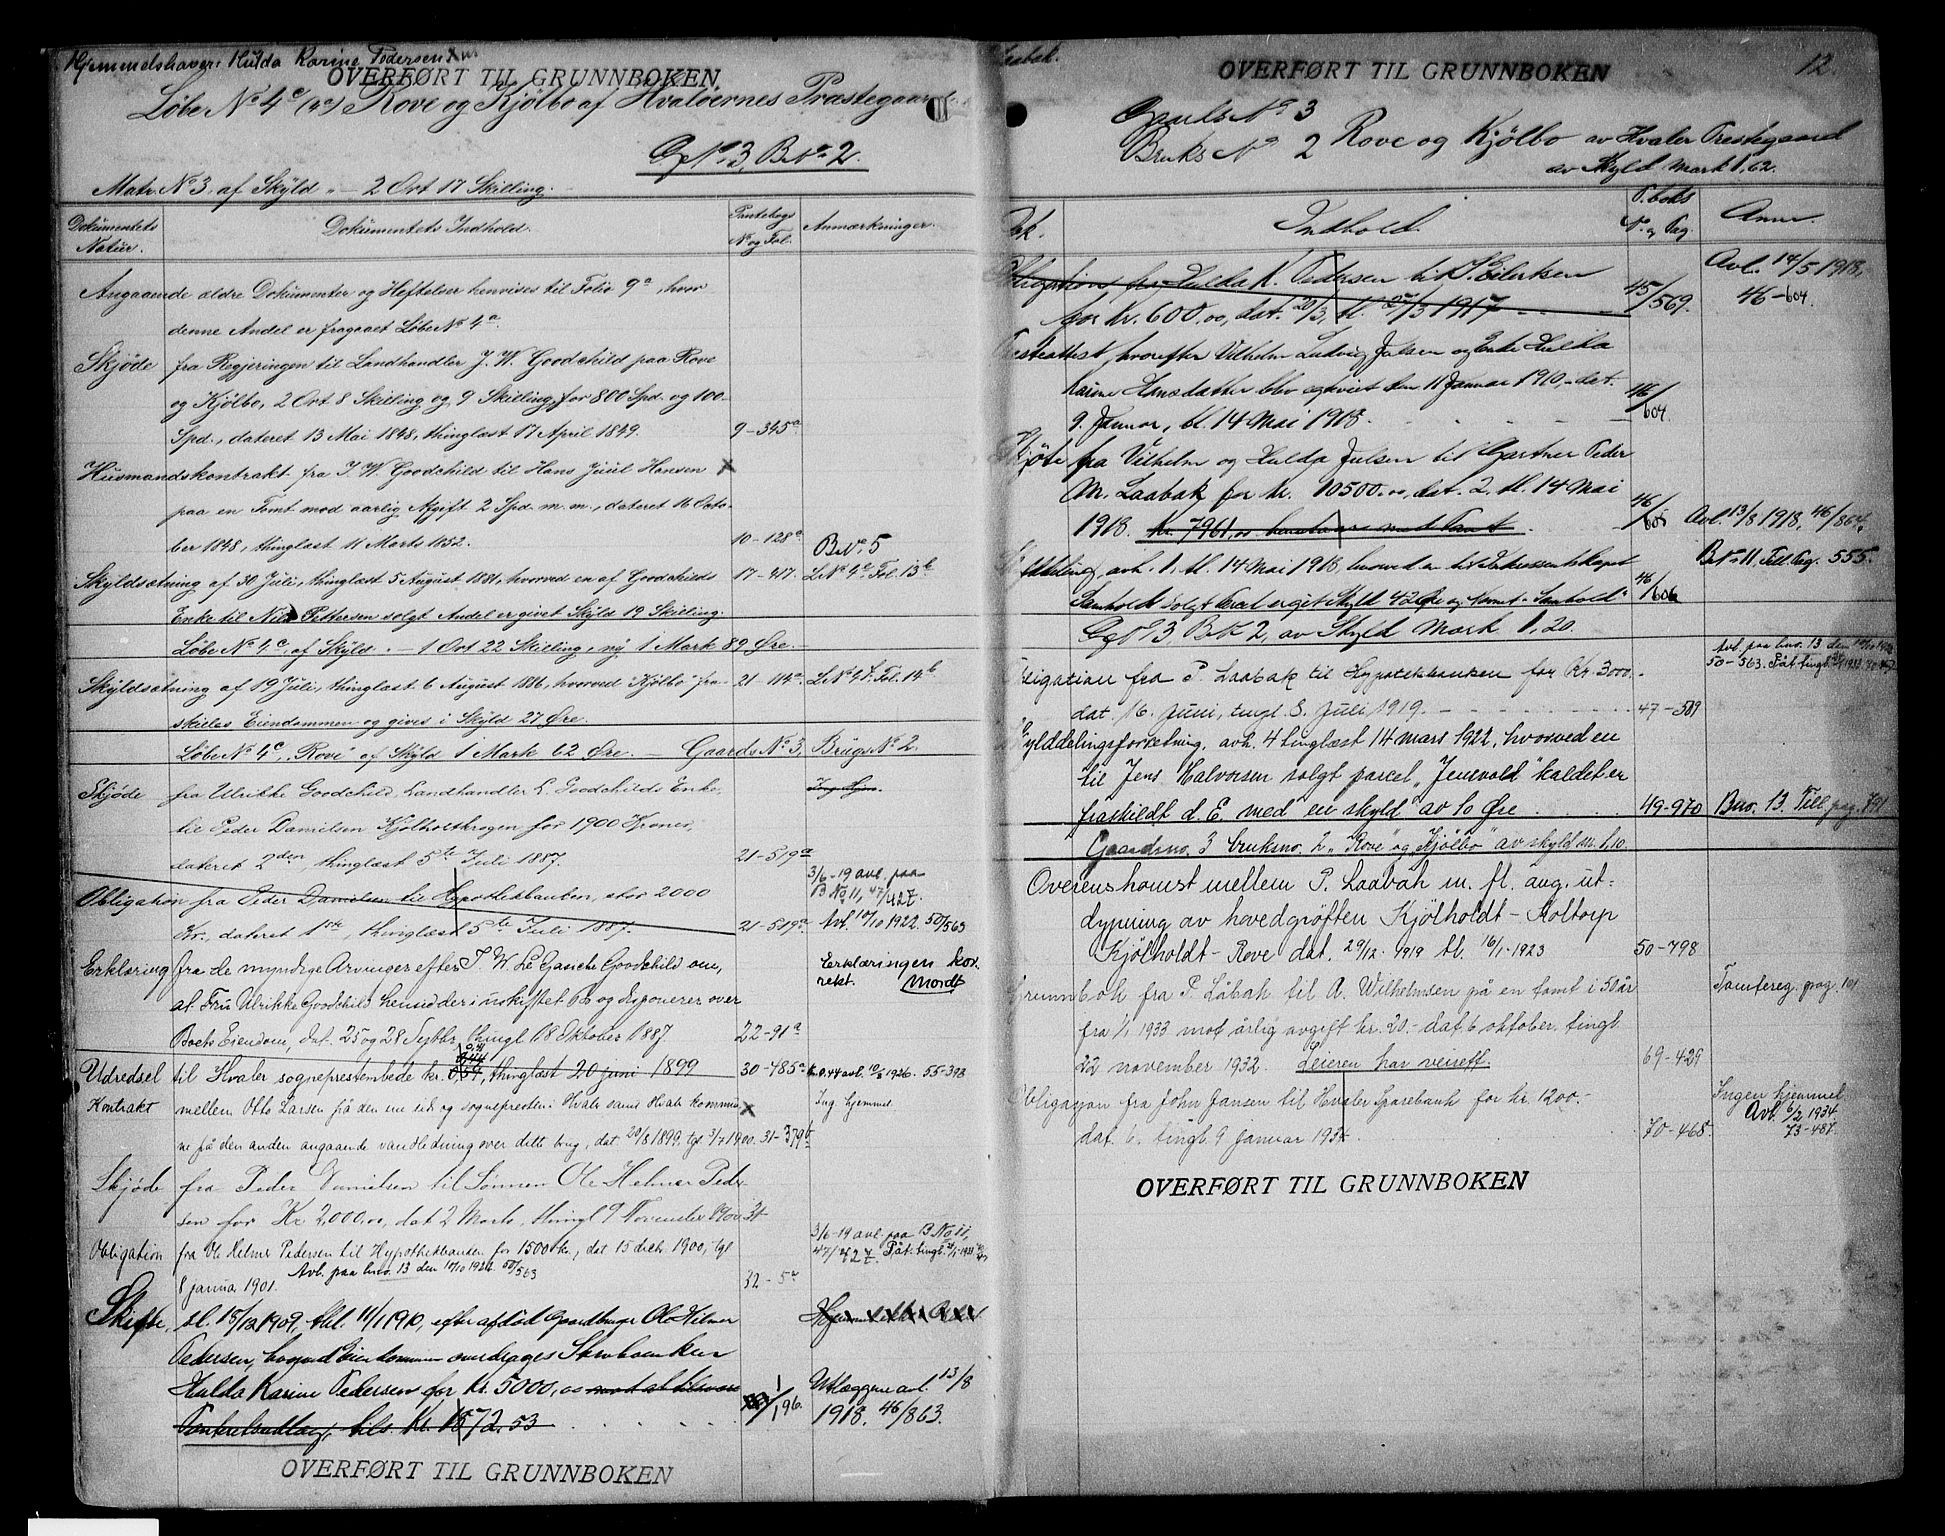 Hjemmelshaver: Hulda Karine Pedersen
OVERFØRT TIL GRUNNBOKEN
Løbe No 4c (4a) Rove og Kjölbo af Hvaløernes Præstegaard
GNo. 3, BNo. 2.
Matr. No 3. af Skÿld " - 2 Ort 17 Skilling.
Dokümentets Natur.
Dokümentets Indhold.
Pantebogs No og Fol.
Anmærkninger.
Angaaende ældre Dokumenter og Heftelser henvises til Folio 9a, hvor
denne Andel er fragaaet Løbe No 4a.
Skjøde fra Regjeringen til Landhandler J. W. Goodchild paa Rove
og Kjölbo, 2 Ort 8 Skilling og 9 Skilling, for 800 Spd. og 100
Spd., dateret 13 Mai 1848, thinglæst 17 April 1849. 9-345a
Husmandskontrakt fra J. W. Goodchild til Hans Juul Hansen x
paa en Tomt mod aarlig Afgift 2 Spd. m. m., dateret 16 Octo-
ber 1848, thinglæst 11 Marts 1852. 10-128a BNo. 5
Skyldsætning af 30 Juli, thinglæst 5 August 1881, hvorved en af Goodchilds 17-417. LNo 4e Fol. 13b
Enke til Nils Pettersen solgt Andel er givet Skÿld 19 Skilling.
Løbe No 4c, af Skÿld " - 1 Ort 22 Skilling, ny 1 Mark 89 Øre.
Skÿldsætning af 19 Juli, thinglæst 6 August 1886, hvorved "Kjölbo" fra- 21-114a LNo 4f. Fol. 14b
skilles Eiendommen og gives i Skÿld 27 Øre.
Løbe No 4c, "Rove" af Skÿld 1 Mark 62 Øre. - Gaards No 3, Brügs No 2.
Skjøde fra Ulrikke Goodchild, Landhandler L. Goodchilds Enke,
til Peder Danielsen Kjölholtkrogen for 1900 Kroner,
dateret 2den, thinglæst 5te Juli 1887. 21-519a
3/6-19 avl. paa
B No 11, 47/427.
Obligation fra Peder Danielsen til Hypothekbanken, stor 2000
Kr., dateret 1ste, thinglæst 5te Juli 1887. 21-519a Avl. 10/10 1922 50/563
Erklæring fra de myndige Arvinger efter J. W. Le Gasche Goodchild om,
at Fru Ulrikke Goodchild hensidder i uskiftet Bo og disponerer over
Boets Eiendom, dat. 25 og 28 Septbr, thingl 18 Oktober 1887 22-91a
Udredsel til Hvaler sogneprestembede kr. 0,59, thinglæst 20 juni 1899 30-485a kr 0.44 avl. 10/8 1926. 55-398
Kontrakt mellem Otto Larsen på den ene side og sognepresten i Hvaler samt Hvaler kommu- x Ing. hjemmel
ne på den anden angaaende vandledning over dette brug, dat 20/8 1899. tgl 3/7 1900. 31-379b
Skjøde fra Peder Danielsen til Sønnen Ole Helmer Peder-
sen for Kr 2,000.00, dat 2 Marts, thingl 9 November 1900
Obligation fra Ole Helmer Pedersen til Hypothekbanken for 1500 kr., dat 15 decbr. 1900, tgl
8 januar 1901. Avl. paa bno. 13 den 10/10 1922 50/563 32-5a
3/6-19 avl paa B No 11,
47/427.
Skifte, sl. 15/12 1909, thl. 11/1 1910, efter afdød Gaardbruger Ole Hilmer
Pedersen, hvorved Eiendommen overdrages Enken
Hulda Karine Pedersen for Kr. 5000,00
1/196. Utlæggene avl. 13/8
1918. 46/863.
tils. Kr. 1572.53
OVERFØRT TIL GRUNNBOKEN
Laabak.
OVERFØRT TIL GRUNNBOKEN
12.
Gaards No 3
Bruks No 2 Rove og Kjölbo av Hvaler Prestegaard
av Skyld Mark 1,62.
Dok.
Indhold.
P.boks No. og Pag.
Anm.
Obligation fra Hulda K. Pedersen til Eilertsen 45/569. Avl. 14/5 1918,
for kr. 600.00, dat. 20/3, tl. 27/3 1917 46-604.
Presteattest, hvorefter Vilhelm Ludvig Julsen og Enke Hulda
Karine Hansdatter blev egteviet den 11 Januar 1910, - dat.
9. Januar, tl. 14 Mai 1918. 46/604.
Skjöte fra Vilhelm og Hulda Julsen til Gartner Peder
M. Laabak for Kr. 10500.00, dat. 2. tl. 14 Mai
1918. Kr. 7961,00 46/605 Avl. 13/8 1918, 46/864.
Skylddeling, avh. 1. tl. 14 Mai 1918, hvorved en til Interessentskapet 46/606 BNo 11. Till. Pag. 555.
Samhold solgt Parcel er git Skyld 42 Øre og Navnet "Samhold"
GNo 3 BNo 2, av Skyld Mark 1,20.
Avl. paa bno. 13 den 10/10 1922
50-563.
Obligation fra P. Laabak til Hypotekbanken for Kr. 3000.-
dat. 16. Juni, tingl. 8. Juli 1919. 47-509
Skylddelingsforretning, avh. 4 tinglæst 14 mars 1922, hvorved en
til Jens Halvorsen solgt parcel, "Jenevold" kaldet er
fraskildt d. E. med en skyld av 10 Øre 49-970 Bno. 13. Till. pag. 791
Gaardsno. 3 bruksno. 2 "Rove" og "Kjölbo" av skyld m. 1,10
Overenskomst mellem P. Laabak m. fl. ang. ut-
dypning av hovedgrøften Kjölholdt - Holtorp
Kjölholdt - Rove dat. 29/12 1919 tl. 16/1-1923 50-798
Grunnbok fra P. Låbak til A. Wilhelmsen på en tomt i 50 år Tomtereg. pag. 101
fra 1/1 1933 mot årlig avgift kr. 20.- dat. 6 oktober, tingl.
22 november 1932. Leieren har veirett. 69-429
Obligasjon fra John Jansen til Hvaler Sparebank for kr. 1200.- Ingen hjemmel
Avl. 6/2 1934
73-487.
dat. 6. tingl. 9 januar 1934. 70-465.
OVERFØRT TIL GRUNNBOKEN
Erklæringen kor-
rekt. Mordt